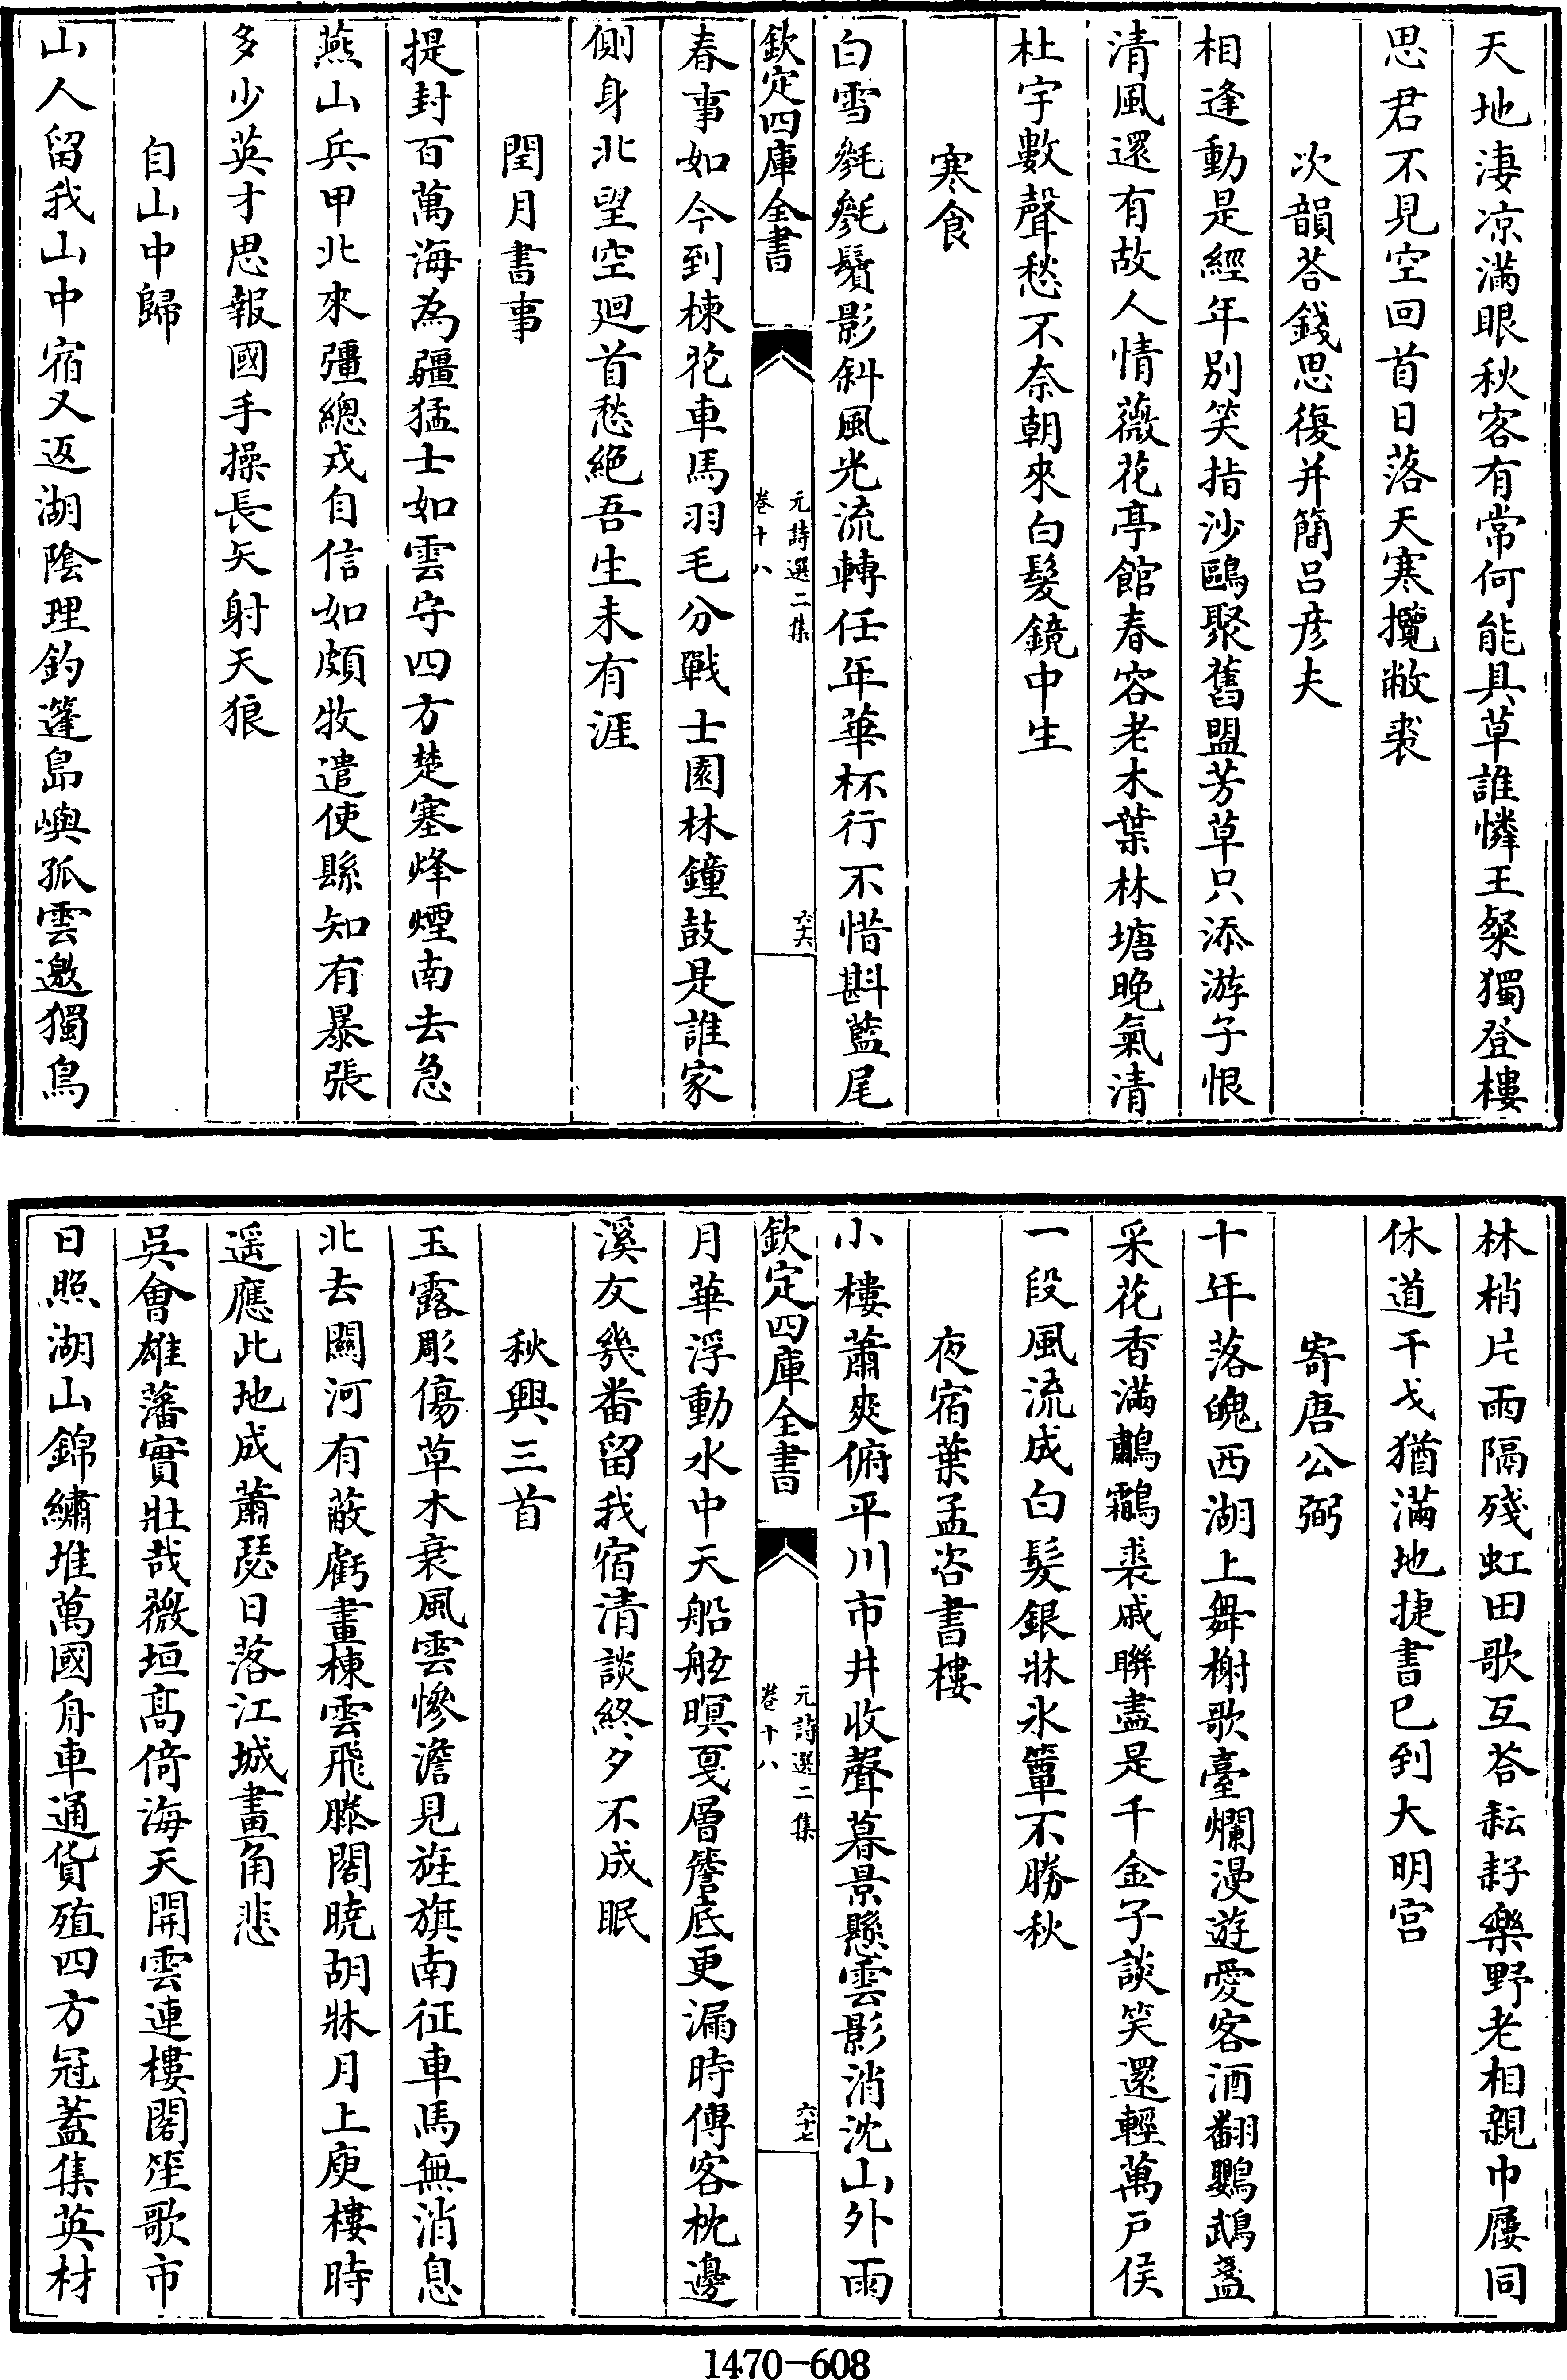 天地淒凉滿眼秋客有常何能具草誰憐王粲獨登樓
思君不見空回首日落天寒攬敝裘
次韻荅錢思復并簡吕彦夫
相逢動是經年别笑指沙鷗聚舊盟芳草只添游子恨
清風還有故人情薇花亭館春容老木葉林塘晚氣清
杜宇數聲愁不奈朝來白髮鏡中生
寒食
白雪毿毿鬢影斜風光流轉任年華杯行不惜斟藍尾
欽定四庫全書
元詩選二集
卷十八
六十六
春事如今到楝花車馬羽毛分戰士園林鐘鼓是誰家
側身北望空廻首愁絶吾生未有涯
閏月書事
提封百萬海為疆猛士如雲守四方楚塞烽煙南去急
燕山兵甲北來彊總戎自信如頗牧遣使縣知有暴張
多少英才思報國手操長矢射天狼
自山中歸
山人留我山中宿又返湖陰理釣蓬島嶼孤雲邀獨鳥
林梢片雨隔殘虹田歌互荅耘耔樂野老相親巾屨同
休道干戈猶滿地捷書已到大明宫
寄唐公弼
十年落魄西湖上舞榭歌臺爛漫遊愛客酒翻鸚鵡盞
采花香滿鷫鸘裘戚聨盡是千金子談笑還輕萬户侯
一段風流成白髮銀牀氷簟不勝秋
夜宿葉孟咨書樓
小樓蕭爽俯平川市井收聲暮景懸雲影消沈山外雨
欽定四庫全書
元詩選二集
卷十八
六十七
月華浮動水中天船舷暝戛層簷底更漏時傳客枕邊
溪友幾番留我宿清談終夕不成眠
秋興三首
玉露彫傷草木衰風雲慘澹見旌旗南征車馬無消息
北去關河有蔽虧畫棟雲飛滕閣曉胡牀月上庾樓時
遥應此地成蕭瑟日落江城畫角悲
吳會雄藩實壯哉薇垣髙倚海天開雲連樓閣笙歌市
日照湖山錦繡堆萬國舟車通貨殖四方冠蓋集英材
1470-608